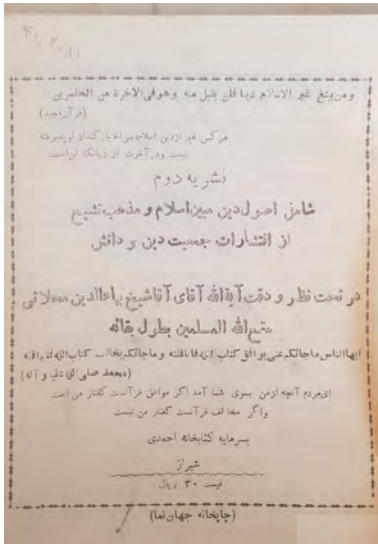 ومن یبتغ غیر الاسلام دینا فلن یقبل منه وهوفی الاخرة من الخاسرین
(قرآن مجید)
هر کس غیر از دین اسلام دینی اختیار کند از او پذیرفته
نیست و در آخرت از زیانکاران است
نشریه دوم
شامل اصول دین مبین اسلام و مذهب تشیع
از انتشارات جمعیت دین و دانش
در تحت نظر و دقت آیة الله آقای آقا شیخ بهاءالدین محلاتی
متع الله المسلمین بطول بقائه
ایها الناس ماجائکم عنی یوافق کتاب الله فانا قلته وماجائکم یخالف کتاب الله فلم اقله
(محمد صلی الله علیه و آله)
ای مردم آنچه از من بسوی شما آمد اگر موافق قرآنست گفتار من است
واگر مخالف قرآنست گفتار من نیست
بسرمایه کتابخانه احمدی
شیراز
قیمت ۳۰ ریال
(چاپخانه جهان نما)